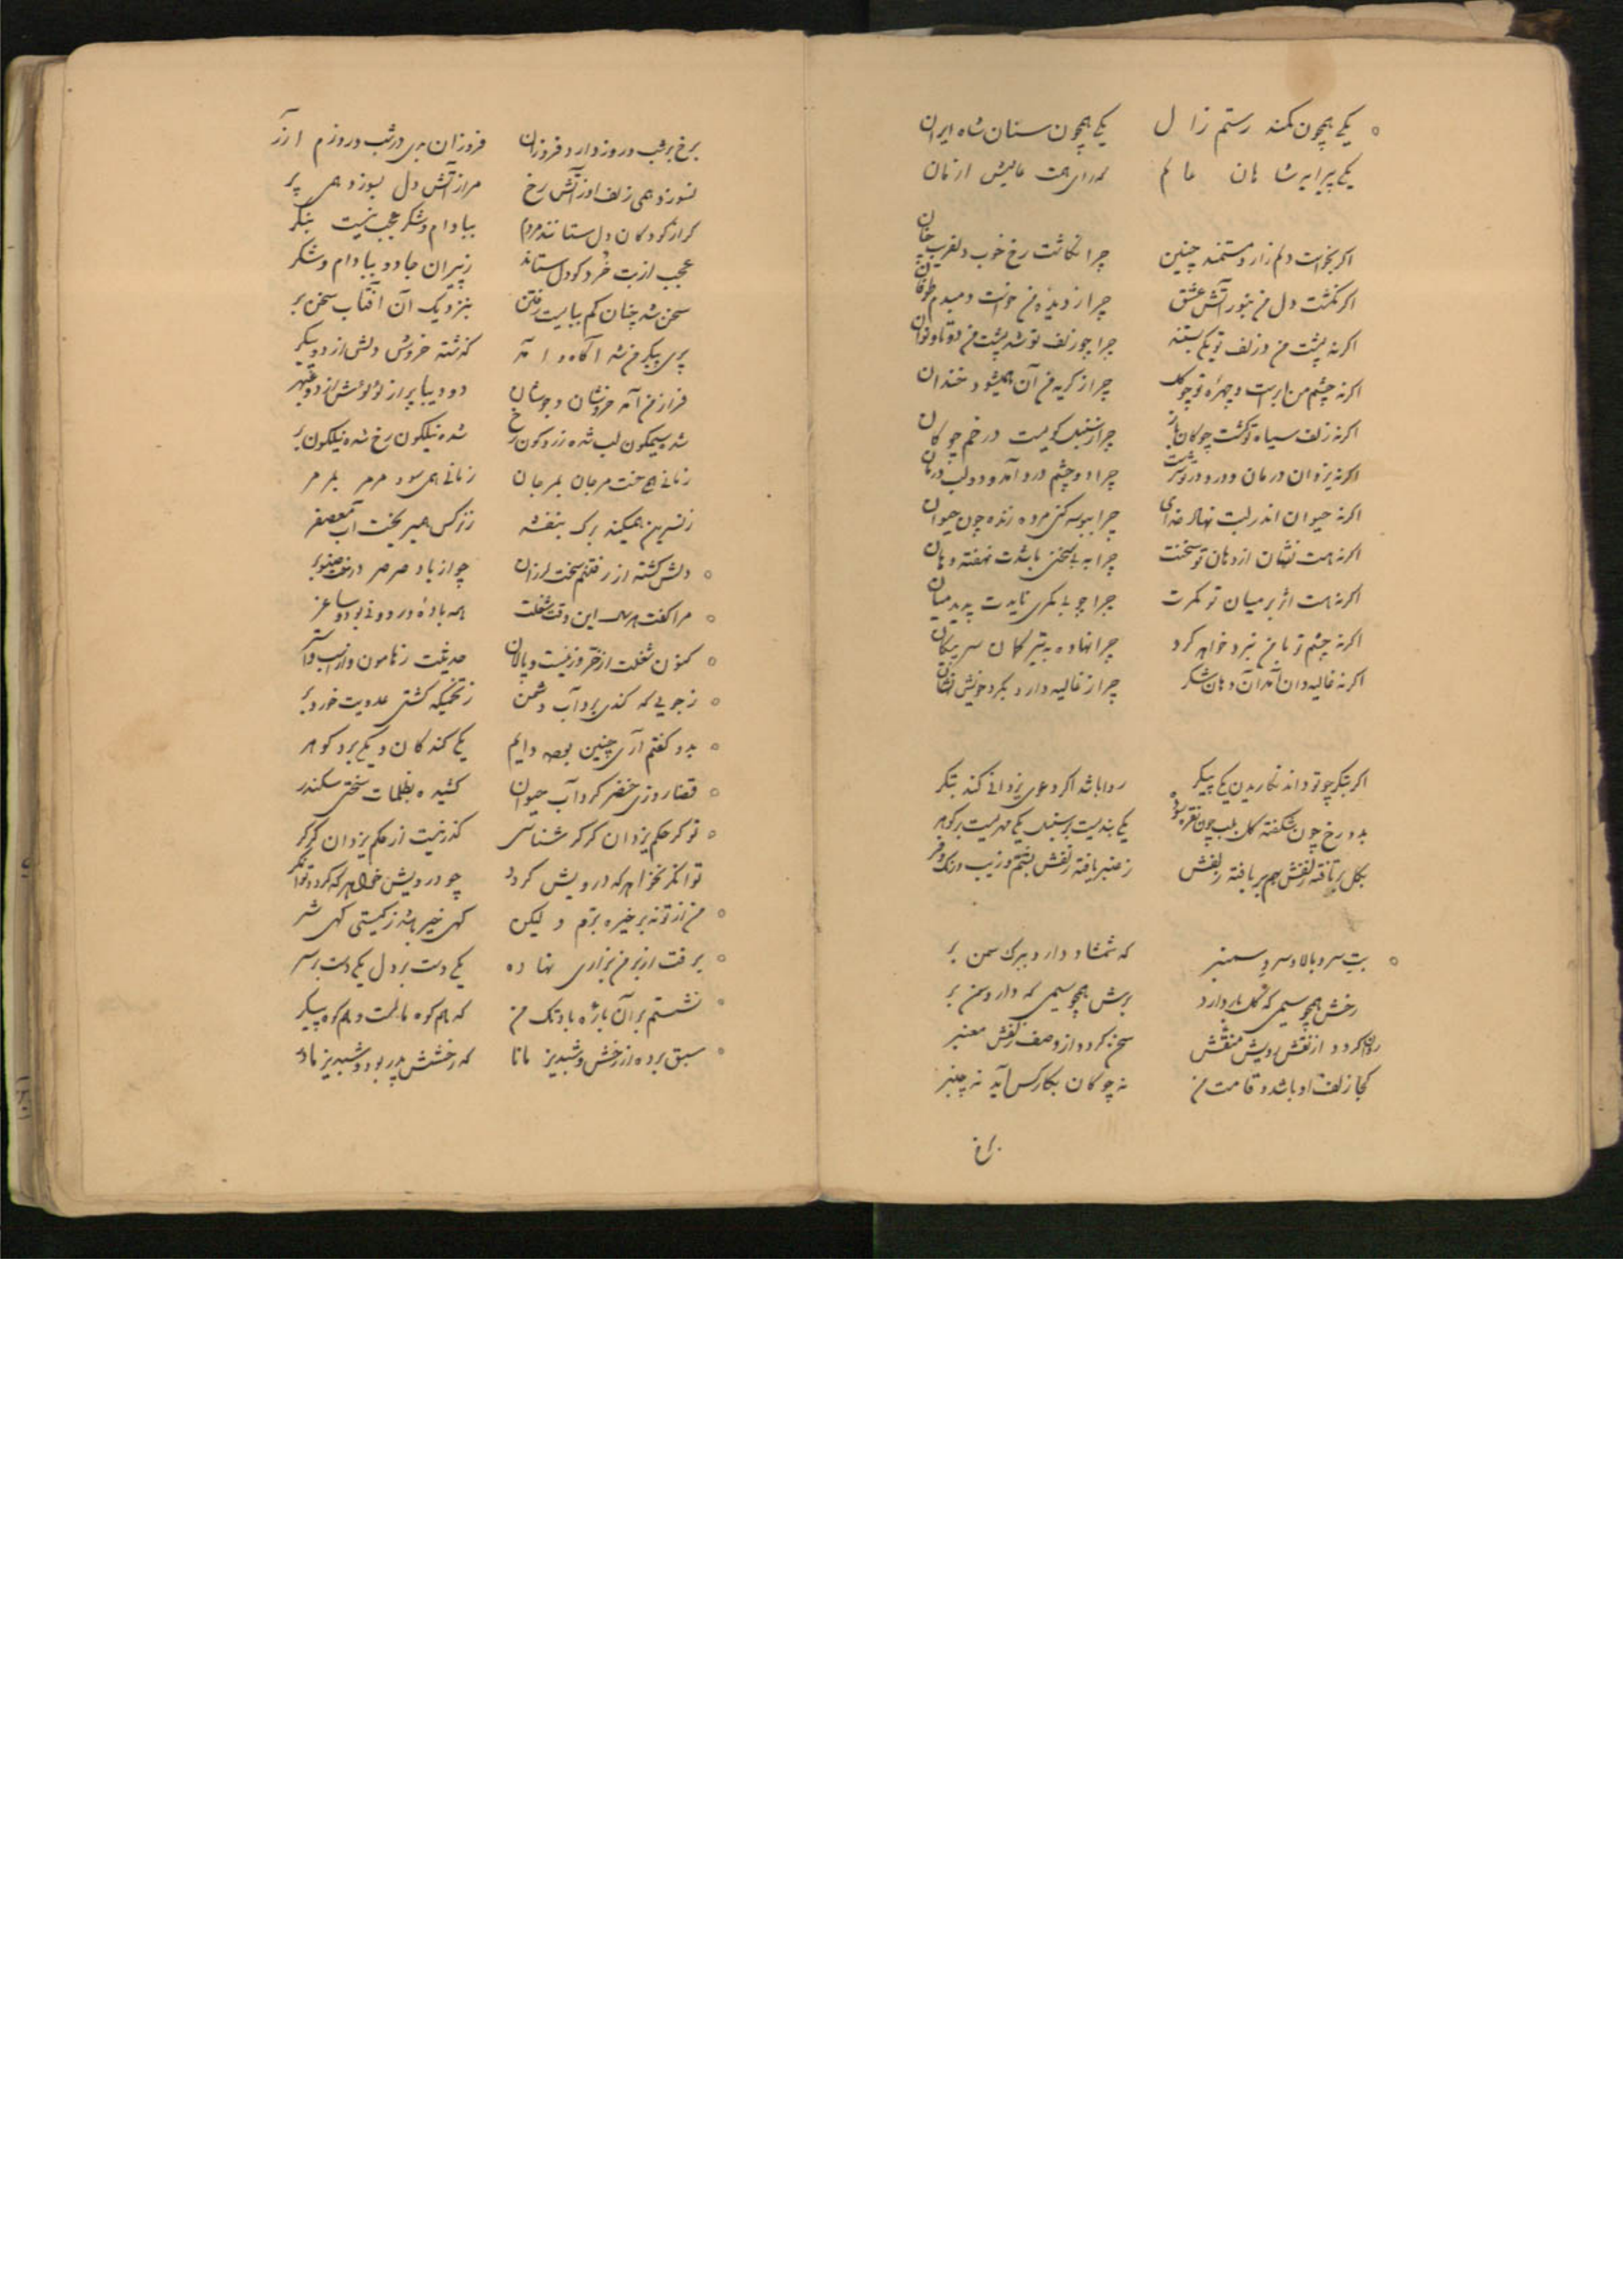 یکی همچون کمند رستم زال یکی همچون سنان شاه ایران
یکی پیرایه شاهان عالم
اگر نخواست دلم زار و مستمند چنین چرا نگاشت رخ خوب دلفریب چنان
اگر نگشت دل من تنور آتش عشق چرا ز دیده من خواست دمبدم طوفان
اگر نه پشت من و زلف تو یکی بستند چرا چو زلف تو شد پشت من دوتا و نوان
اگر نه چشم من ابرست و چهره تو چو گل چرا ز گریه من آن همی شود خندان
اگر نه زلف سیاه تو گشت چوگان باز چرا ز سنبل گوییست در خم چوگان
اگر نه یزدان درمان و درد در تو سرشت چرا دو چشم درد آمد و دو لب درمان
اگر نه حیوان اندر لبت نهاد خدای چرا ببوسه کنی مرده زنده چون حیوان
اگر نه هست نشان از دهان تو سخنت چرا به بی سخنی باشدت نهفته دهان
اگر نه هست اثر بر میان تو کمرت چرا چو بی کمری نایدت پدید میان
اگر نه چشم تو با من نبرد خواهد کرد چرا نهاده به تیر کمان سر پیکان
اگر نه غالیه دان آمد آن دهان شکر چرا ز غالیه دارد بگرد خویش نشان
اگر بتگر چو تو داند نگاریدن یکی پیکر روا باشد اگر دعوی یزدانی کند بتگر
بدو رخ چون شکفته گل بلب چون
بگل بر تافته زلفش بهم بر بافته زلفش ز عنبر یافته زلفش
بت سرو بالا و سرو سمنبر که شمشاد دارد ببرگ سمن بر
رخش همچو سیمی که گل بار دارد برش همچو سیمی که دارد سمن بر
روان گردد از نقش رویش منقش سخن گردد از وصف زلفش معنبر
کجا زلف او باشد و قامت من نه چوگان بکار کس آید نه چنبر
برخ
برخ بر شب و روز دارد فروزان فروزان مهی در شب و روزم آذر
نسوزد همی زلف او ز آتش رخ مرا ز آتش دل بسوزد همی بر
گر از کودکان دل ستانند مردم ببادام و شکر عجب نیست بنگر
عجب از بت خرد کو دل ستاند ز پیران جادو ببادام و شکر
سخن شد چنان کم ببایست رفتن بنزدیک آن آفتاب سخن بر
پری پیکر من شد آگاه و آمد گذشته خروش دلش از دو پیکر
فراز من آمد خروشان و جوشان دو دیبا پر از لؤلؤش از دو عبهر
شده سیمگون لب شده زردگون رخ شده نیلگون رخ شده نیلگون بر
زمانی همی خست مرجان بمرجان زمانی همی سود مرمر بمرمر
ز نسرین همی کند برگ بنفشه ز نرگس همی ریخت آب معصفر
دلش گشته از رفتنم سخت لرزان چو از باد صرصر درخت صنوبر
مرا گفت هر سال این وقت شغلت همه باده و رود بودی و ساغر
کنون شغلت از خر و زینست و پالان حدیثت ز هامون و از اسب و استر
ز جویی که کندی برد آب دشمن ز تخمی که کشتی عدویت خورد بر
بدو گفتم آری چنین بود دایم یکی کند کان و یکی برد گوهر
قضا روزی خضر کرد آب حیوان کشیده بظلمات سختی سکندر
تو گر حکم یزدان گرگر شناسی گذر نیست از حکم یزدان گرگر
توانگر نخواهد که درویش گردد چو درویش خواهد که گردد توانگر
من از تو نه بر خیره برم ولیکن گهی خیر باشد ز گیتی گهی شر
برفت از بر من بزاری نهاده یکی دست بر دل یکی دست بر سر
نشستم بر آن باره بادتک من که هم کوه مالست و هم کوه پیکر
سبق برده از رخش و شبدیز مانا که رخشش پدر بود و شبدیز مادر